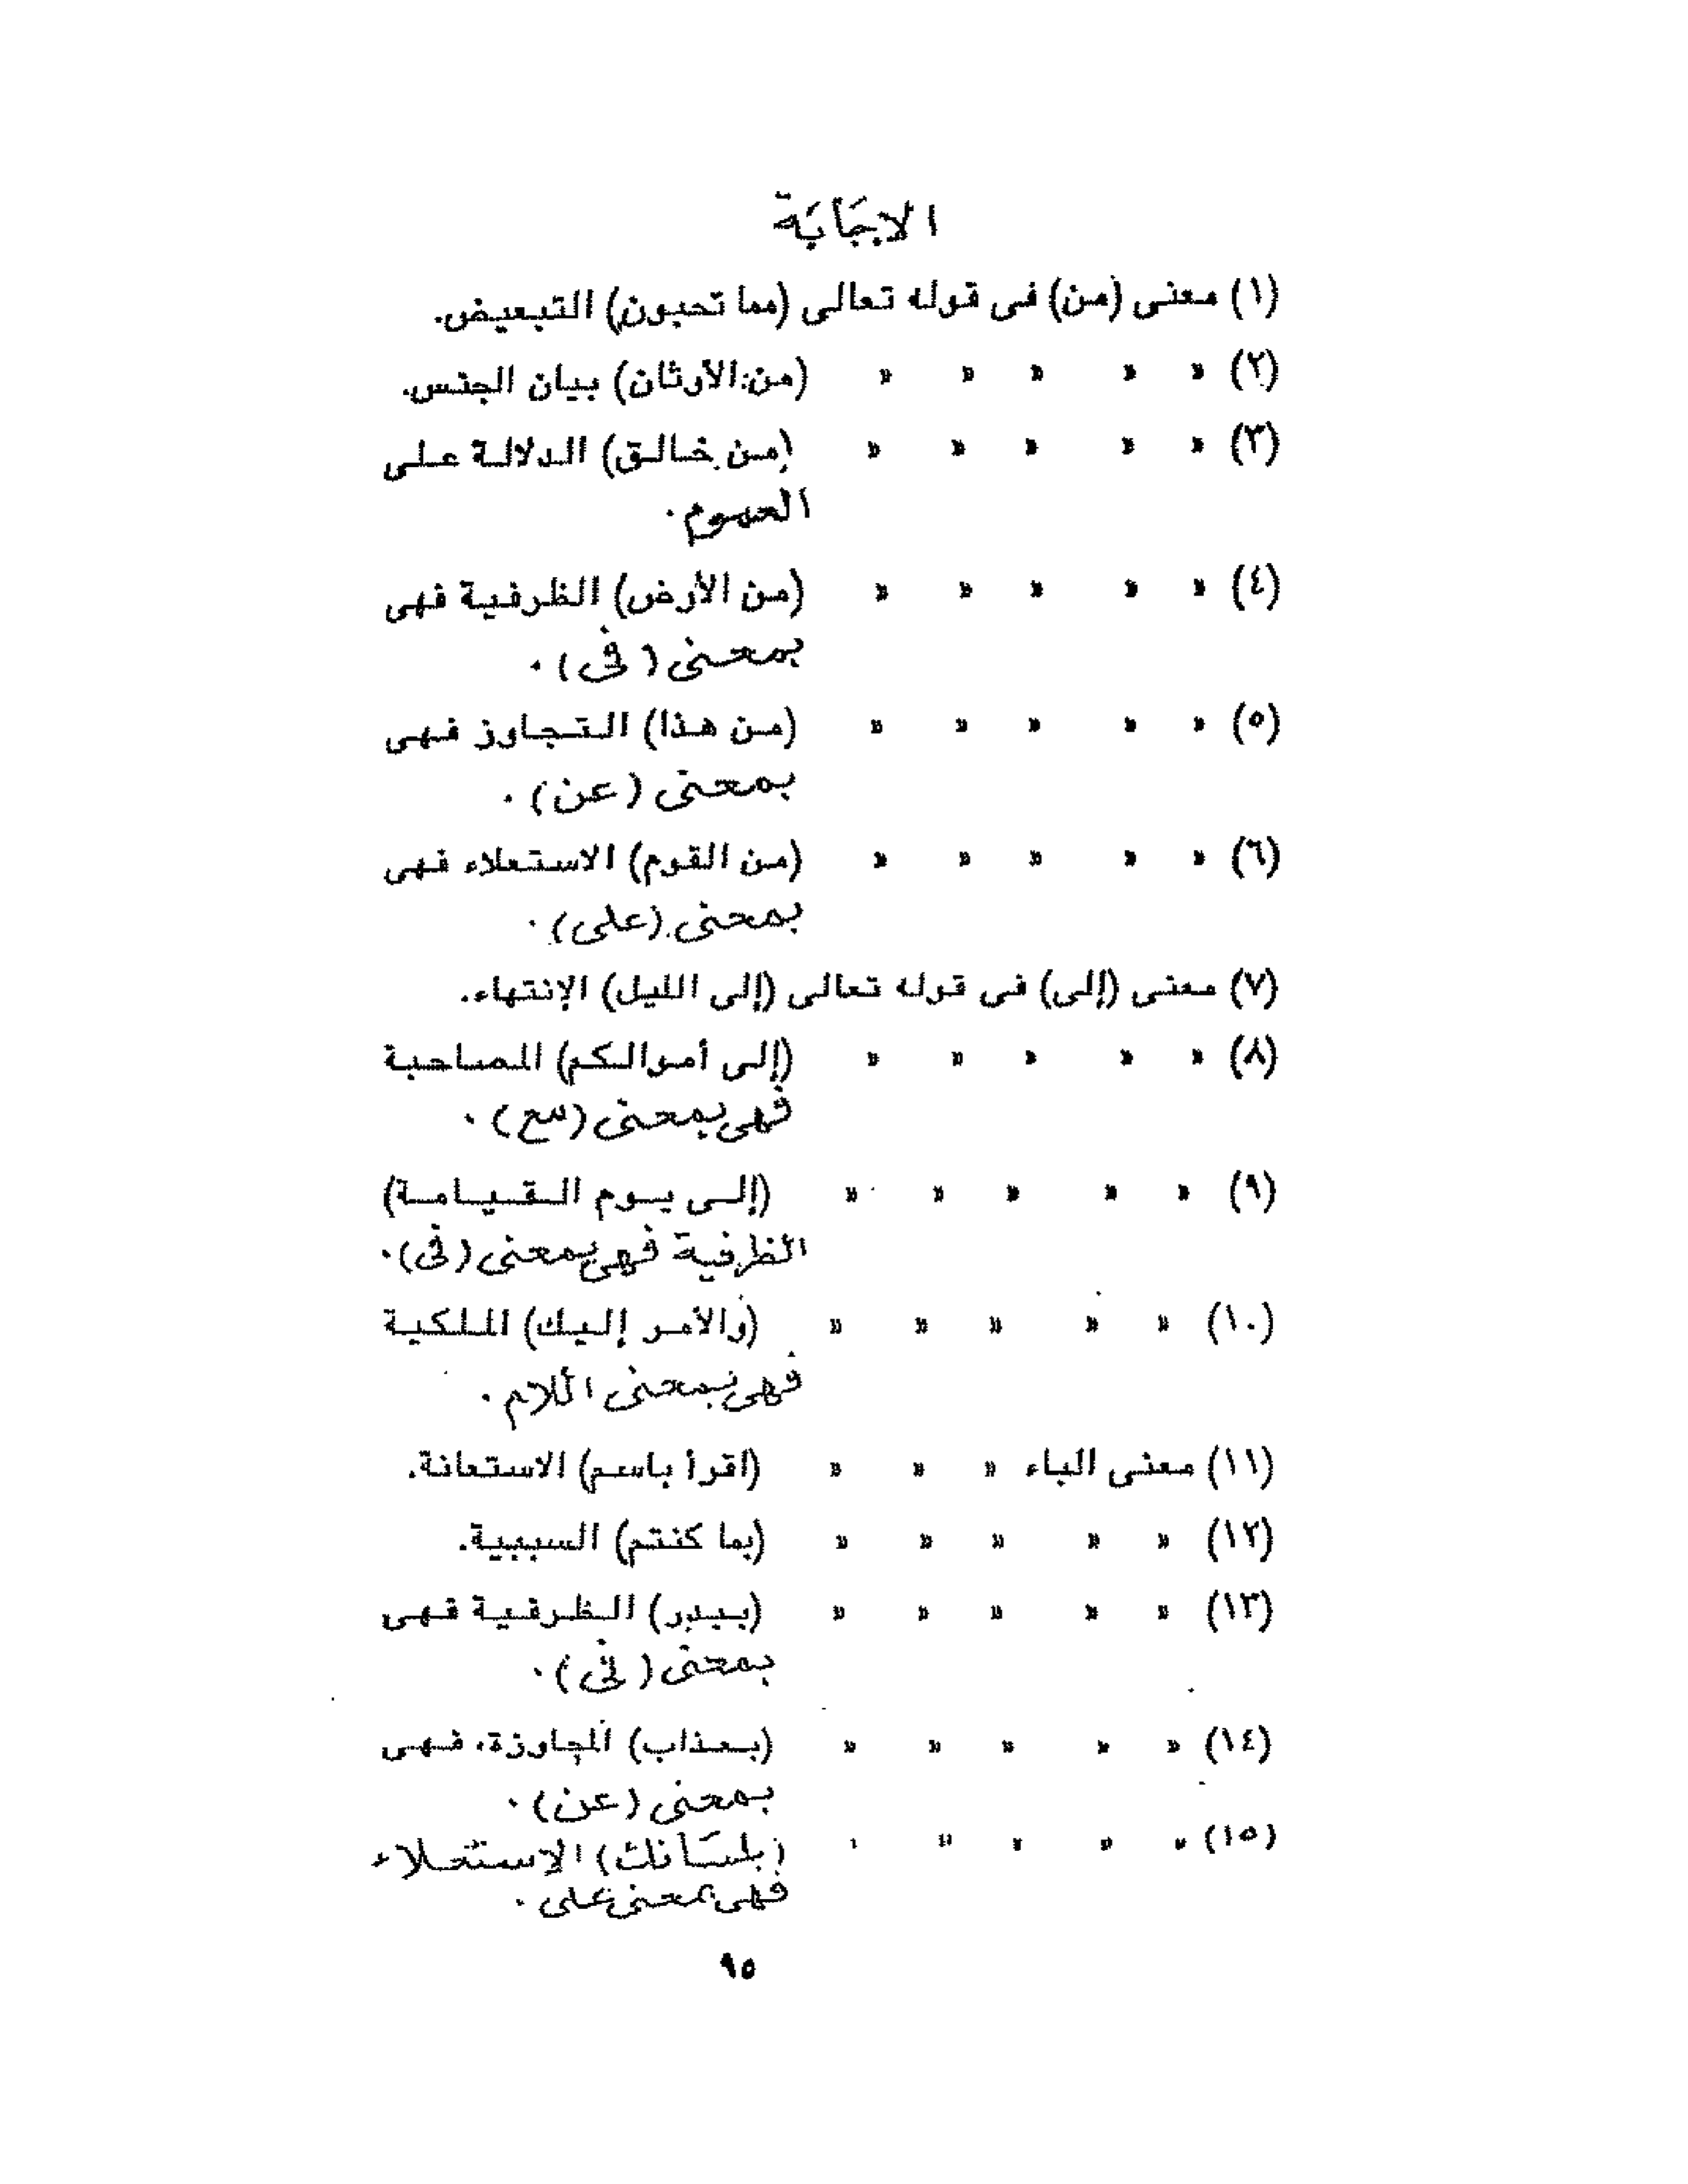 الاجَابَة
(١) معنى (من) فى قوله تعالى (مما تحبون) التبعيض.
(٢) » » » » » (من الأوثان) بيان الجنس.
(٣) » » » » » (من خالق) الدلالة على
العموم.
(٤) » » » » » (من الأرض) الظرفية فهى
بمعنى (فى).
(٥) » » » » » (من هذا) التجاوز فهى
بمعنى (عن).
(٦) » » » » » (من القوم) الاستعلاء فهى
بمعنى (على).
(٧) معنى (إلى) فى قوله تعالى (إلى الليل) الإنتهاء.
(٨) » » » » » (إلى أموالكم) المصاحبة
فهى بمعنى (مع).
(٩) » » » » » (إلى يوم القيامة)
الظرفية فهى بمعنى (فى).
(١٠) » » » » » (والأمر إليك) الملكية
فهى بمعنى اللام.
(١١) معنى الباء » » » (اقرأ باسم) الاستعانة.
(١٢) » » » » » (بما كنتم) السببية.
(١٣) » » » » » (ببدر) الظرفية فهى
بمعنى (فى).
(١٤) » » » » » (بعذاب) المجاوزة، فهى
بمعنى (عن).
(١٥) » » » » » (بلسَانك) الاستعلاء
فهى بمعنى على.
٩٥